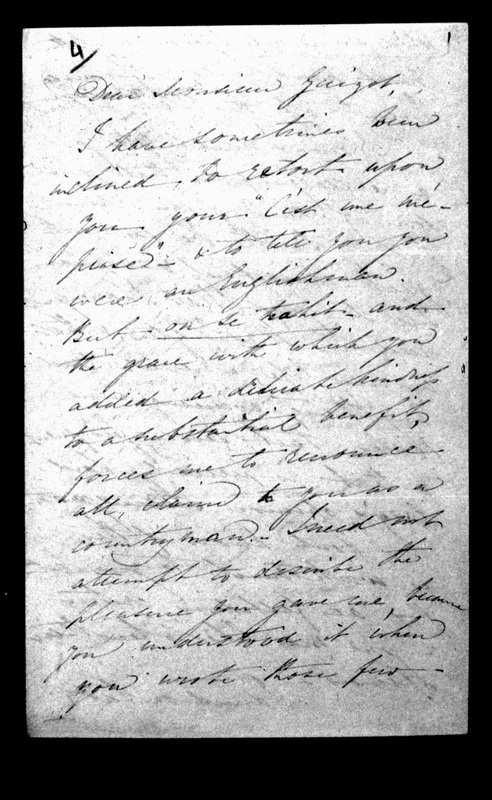 4/
Dear Monsieur Guizot,
I have sometimes been
inclined to retort upon
you your "C'est une mé-
prise" & to tell you you
were an Englishman.
But on se trahit and
the grace with which you
added a delicate kindness
to a substantial benefit,
forces me to renounce
all claim to you as a
countryman. I need not
attempt to describe the
pleasure you gave me, because
you understood it when
you wrote those few